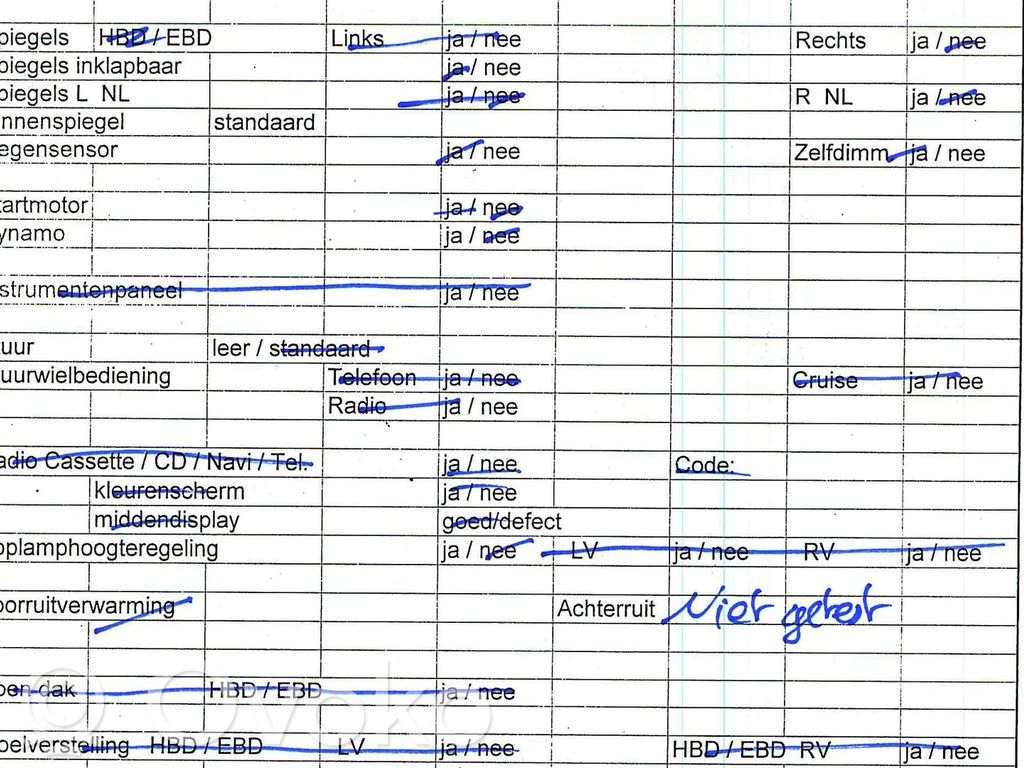 piegels HBD / EBD Links ja / nee Rechts ja / nee
piegels inklapbaar ja / nee
piegels L NL ja / nee R NL ja / nee
nnenspiegel standaard
egensensor ja / nee Zelfdimm ja / nee
tartmotor ja / nee
ynamo ja / nee
strumentenpaneel ja / nee
uur leer / standaard
uurwielbediening Telefoon ja / nee Cruise ja / nee
Radio ja / nee
adio Cassette / CD / Navi / Tel. ja / nee Code:
kleurenscherm ja / nee
middendisplay goed/defect
oplamphoogteregeling ja / nee LV ja / nee RV ja / nee
oorruitverwarming Achterruit Niet getest
pen dak HBD / EBD ja / nee
oelverstelling HBD / EBD LV ja / nee HBD / EBD RV ja / nee
© Ovoko